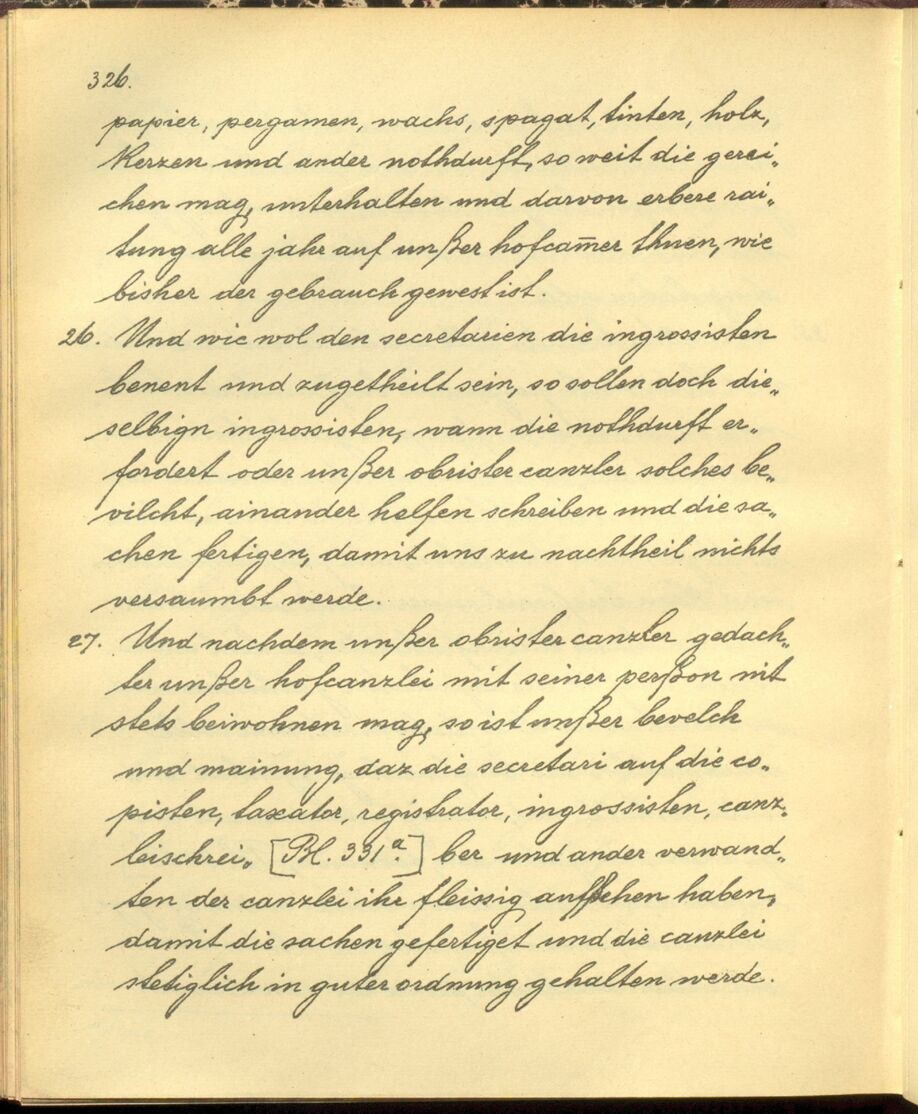 326.
papier, pergamen, wachs, spagat, tinten, holz,
Kerzen und ander nothdurft, so weit die gerei„
chen mag, unterhalten und darvon erbere rai„
tung alle jahr auf unßer hofcam̄er thuen, wie
bisher der gebrauch gewest ist.
26. Und wie wol den secretarien die ingrossisten
benent und zugetheilt sein, so sollen doch die„
selbign ingrossisten, wann die nothdurft er„
fordert oder unßer obrister canzler solches be„
vilcht, ainander helfen schreiben und die sa„
chen fertigen, damit uns zu nachtheil nichts
versaumbt werde.
27. Und nachdem unßer obrister canzler gedach„
ter unßer hofcanzlei mit seiner perßon nit
stets beiwohnen mag, so ist unßer bevelch
und mainung, daz die secretari auf die co„
pisten, taxator, registrator, ingrossisten, canz„
leischrei„ [Bl. 331a.] ber und ander verwand„
ten der canzlei ihr fleissig aufsehen haben,
damit die sachen gefertiget und die canzlei
stetiglich in guter ordnung gehalten werde.